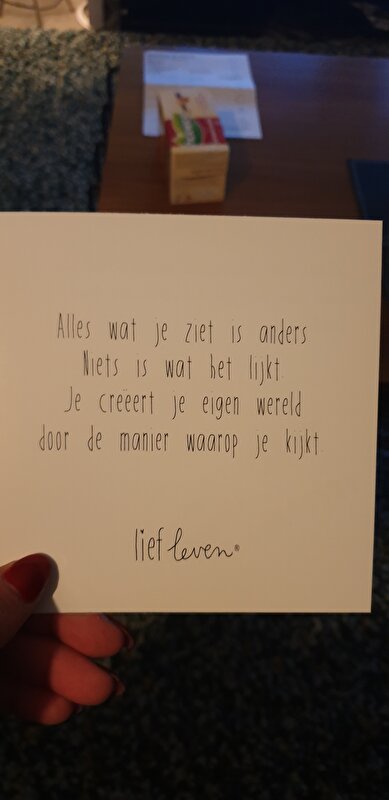 Alles wat je ziet is anders
Niets is wat het lijkt.
Je creëert je eigen wereld
door de manier waarop je kijkt.
lief leven®